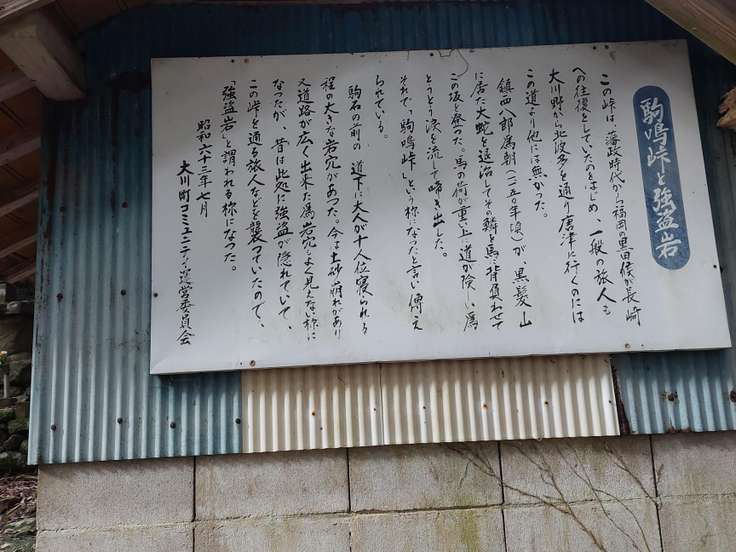 駒鳴峠と強盗岩
この峠は、藩政時代から福岡の黒田侯が長崎
への往復をしていたのをはじめ、一般の旅人も
大川野から北波多を通り唐津に行くのには
この道より他には無かった。
鎮西八郎為朝(一一五〇年頃)が、黒髪山
に居た大蛇を退治してその鱗を馬に背負わせて
この坂を登った。馬の荷が重い上に道が険しい為
とうとう涙を流して啼き出した。
それで「駒鳴峠」という様になったと言い傳え
られている。
駒石の前の道下に大人が十人位寝られる
程の大きな岩穴があつた。今は土砂崩れがあり
又道路が広く出来た為岩穴はよく見えない様に
なつたが、昔は此処に強盗が隠れていて、
この峠を通る旅人などを襲つていたので、
「強盗岩」と謂われる様になった。
昭和六十三年七月
大川町コミュニティ運営委員会